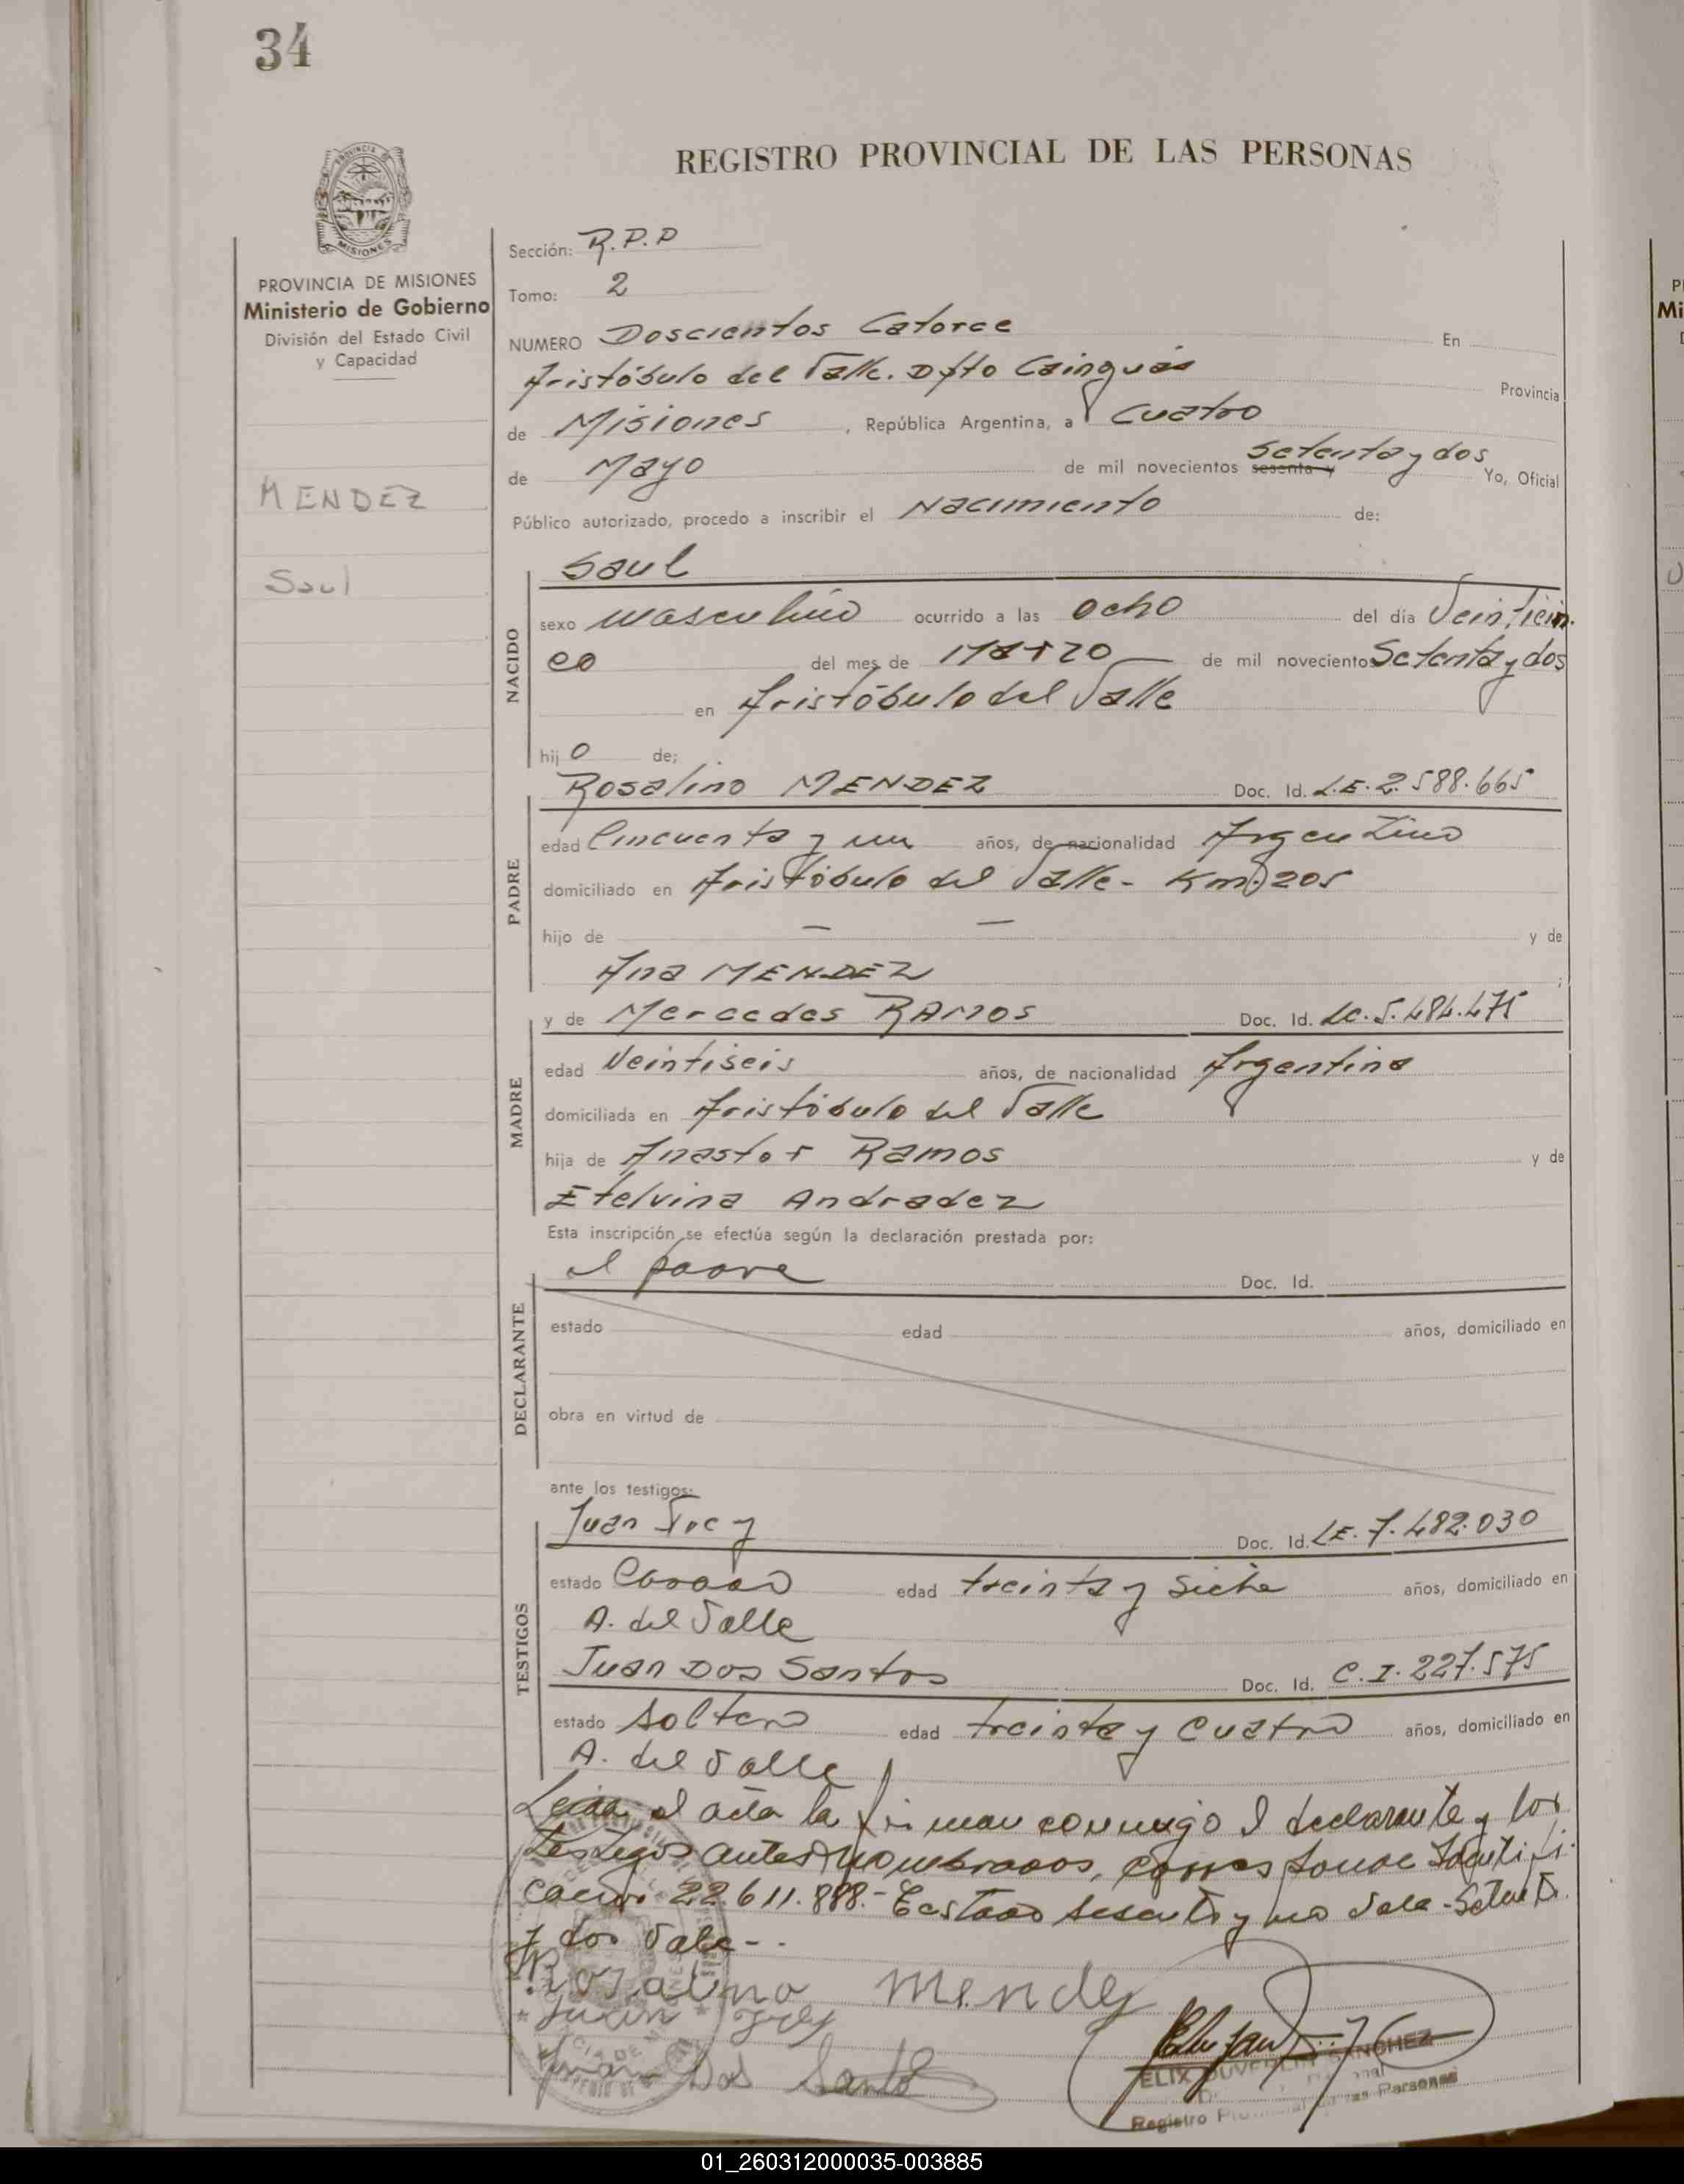 34
REGISTRO PROVINCIAL DE LAS PERSONAS
PROVINCIA DE MISIONES
Ministerio de Gobierno
División del Estado Civil
y Capacidad
MENDEZ
Saul
Sección: R.P.P
Tomo: 2
NUMERO Doscientos Catorce En
Aristóbulo del Valle. Dpto Cainguás Provincia
de Misiones, República Argentina, a Cuatro
de Mayo de mil novecientos sesenta y Setenta y dos Yo, Oficial
Público autorizado, procedo a inscribir el Nacimiento de:
Saul
NACIDO
sexo masculino ocurrido a las ocho del día Veinticin-
co del mes de marzo de mil novecientos Setenta y dos
en Aristóbulo del Valle
hijo de;
Rosalino MENDEZ Doc. Id. L.E. 2.588.665
PADRE
edad Cincuenta y un años, de nacionalidad Argentino
domiciliado en Aristóbulo del Valle - Km. 205
hijo de — — y de
Ana MENDEZ;
y de Mercedes RAMOS Doc. Id. LC. 5.484.475
MADRE
edad Veintiseis años, de nacionalidad Argentina
domiciliada en Aristóbulo del Valle
hija de Anastor Ramos y de
Etelvina Andradez
Esta inscripción se efectúa según la declaración prestada por:
el padre Doc. Id.
DECLARANTE
estado edad años, domiciliado en
obra en virtud de
ante los testigos:
Juan Doc. Id. LE. 7.482.030
TESTIGOS
estado Casado edad treinta y siete años, domiciliado en
A. del Valle
Juan Dos Santos Doc. Id. C.I. 227.575
estado soltero edad treinta y cuatro años, domiciliado en
A. del Valle
Leida el acta la firman conmigo el declarante y los
testigos antes nombrados, corresponde Identifi-
cación 22611.888.- Testado sesenta y no vale - Setenta
y dos Vale - -
Rosalino Mendez
Juan
Juan Dos Santo
SANCHEZ
Registro Personas
01_260312000035-003885